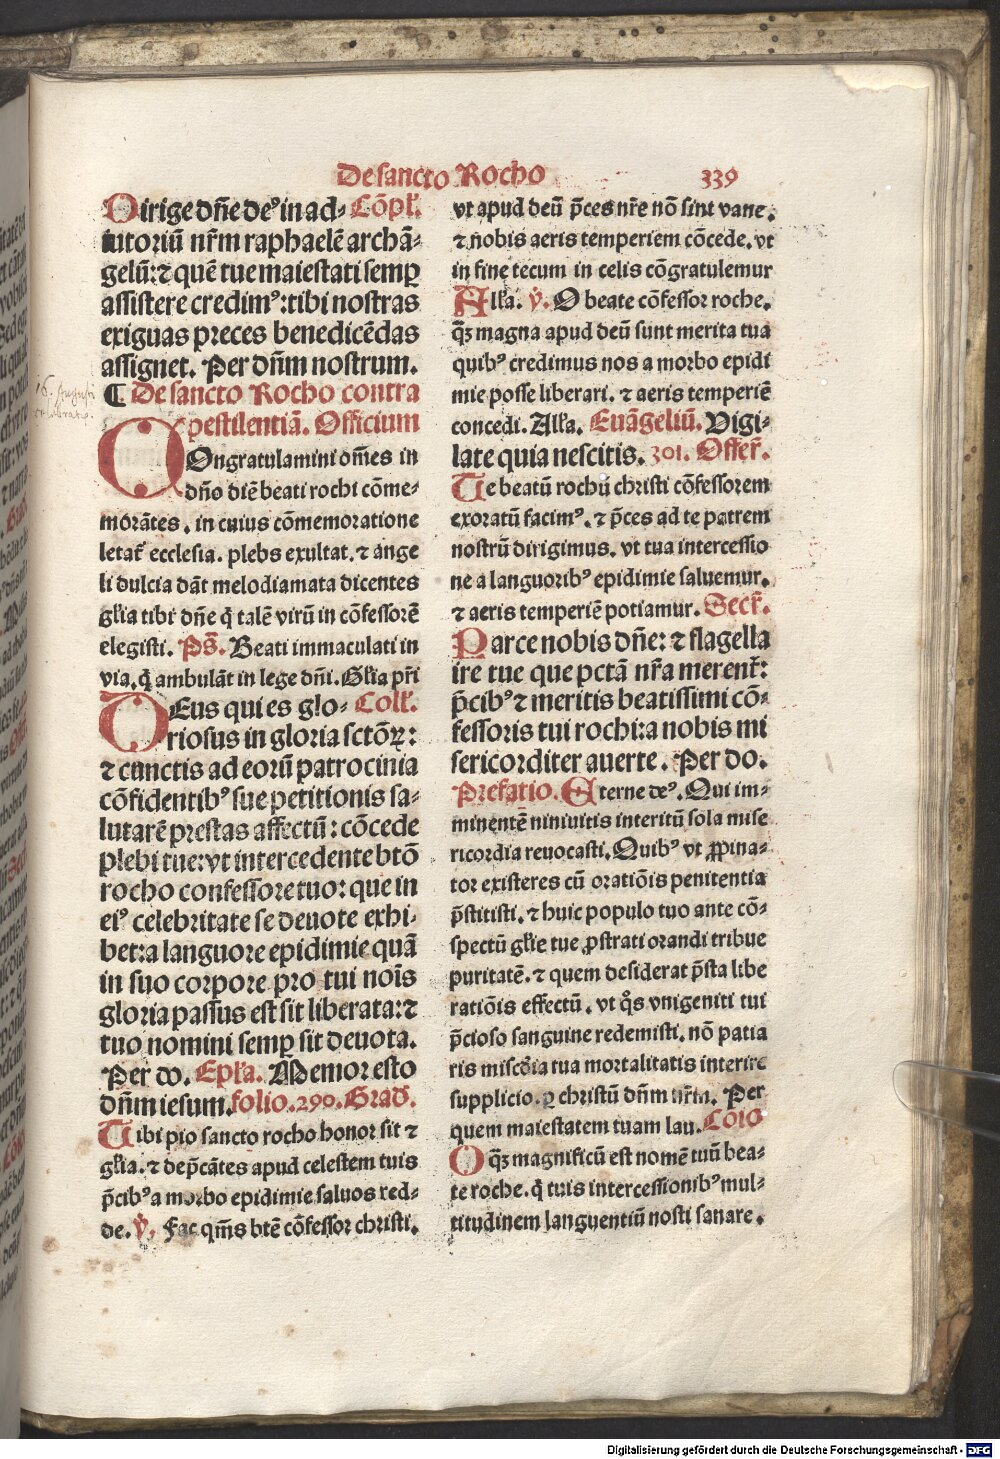 De sancto Rocho 339
Dirige dñe deꝰ in ad- Cõpl'.
iutoriũ nr̃m raphaelẽ archã-
gelũ: ⁊ quẽ tue maiestati semꝑ
assistere credimꝰ: tibi nostras
exiguas preces benedicẽdas
assignet. Per dñm nostrum.
¶ De sancto Rocho contra
pestilentiã. Officium
COngratulamini om̃es in
dño diẽ beati rochi cõme-
morãtes. in cuius cõmemoratione
letat̃ ecclesia. plebs exultat. ⁊ ange
li dulcia dãt melodiamata dicentes
gl'ia tibi dñe q̃ talẽ virũ in cõfessorẽ
elegisti. Ps̃. Beati immaculati in
via. q̃ ambulãt in lege dñi. Gl'ia pr̃i
DEus qui es glo- Coll'.
riosus in gloria sctõꝝ:
⁊ cunctis ad eorũ patrocinia
cõfidentibꝰ sue petitionis sa-
lutarẽ prestas affectũ: cõcede
plebi tue: vt intercedente btõ
rocho confessore tuo: que in
eiꝰ celebritate se deuote exhi-
bet: a languore epidimie quã
in suo corpore pro tui noĩs
gloria passus est sit liberata: ⁊
tuo nomini semꝑ sit deuota.
Per do. Epl'a. Memor esto
dñm iesum. folio. 290. Grad̃.
Tibi pio sancto rocho honor sit ⁊
gl'ia. ⁊ dep̃cãtes apud celestem tuis
p̃cibꝰ a morbo epidimie saluos red-
de. ℣. Fac qm̃s btẽ cõfessor christi.
vt apud deũ p̃ces nr̃e nõ sint vane.
⁊ nobis aeris temperiem cõcede. vt
in fine tecum in celis cõgratulemur
All'a. ℣. O beate cõfessor roche.
q̃ꝫ magna apud deũ sunt merita tua
quibꝰ credimus nos a morbo epidi
mie posse liberari. ⁊ aeris temperiẽ
concedi. All'a. Euãgeliũ. Vigi-
late quia nescitis. 301. Offer̃.
Te beatũ rochũ christi cõfessorem
exoratũ facimꝰ. ⁊ p̃ces ad te patrem
nostrũ dirigimus. vt tua intercessio
ne a languoribꝰ epidimie saluemur.
⁊ aeris temperiẽ potiamur. Secr̃.
Parce nobis dñe: ⁊ flagella
ire tue que pctã nr̃a merent̃:
p̃cibꝰ ⁊ meritis beatissimi cõ-
fessoris tui rochi: a nobis mi
sericorditer auerte. Per do.
Prefatio. Eterne deꝰ. Qui im-
minentẽ niniuitis interitũ sola mise
ricordia reuocasti. Quibꝰ vt ꝓpina-
tor existeres cũ oratiõis penitentia
p̃stitisti. ⁊ huic populo tuo ante cõ-
spectũ gl'ie tue ꝓstrati orandi tribue
puritatẽ. ⁊ quem desiderat p̃sta libe
ratiõis effectũ. vt q̃s vnigeniti tui
p̃cioso sanguine redemisti. nõ patia
ris misc̃dia tua mortalitatis interire
supplicio. ꝑ christũ dñm nr̃m. Per
quem maiestatem tuam lau. Cõio
O q̃ꝫ magnificũ est nomẽ tuũ bea-
te roche. q̃ tuis intercessionibꝰ mul-
titudinem languentiũ nosti sanare.
Digitalisierung gefördert durch die Deutsche Forschungsgemeinschaft - DFG